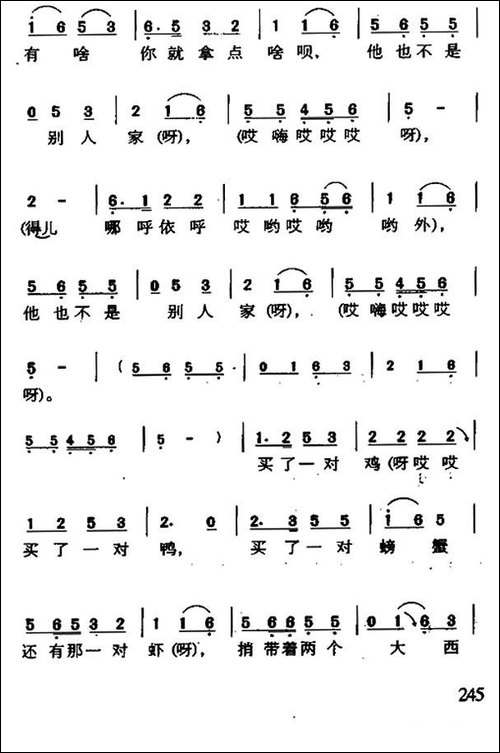 i 6 5 3 | 6· 5 3 2 | 1 1 6 | 5 6 5 5 |
有 啥 你就拿点 啥呗, 他也不是
0 5 3 | 2 1 6 | 5 5 4 5 6 | 5 - |
别人 家(呀), (哎嗨哎哎哎 呀),
2 - | 6· 1 2 2 | 1 1 6 5 6 | 1 1 6 |
(得儿 哪呼依呼 哎哟哎哟 哟外),
5 6 5 5 | 0 5 3 | 2 1 6 | 5 5 4 5 6 |
他也不是 别人 家(呀), (哎嗨哎哎哎
5 - | ( 5 6 5 5 | 0 1 6 3 | 2 1 6 |
呀)。
5 5 4 5 6 | 5 - ) | 1· 2 5 3 | 2 2 2 2 |
买了一对 鸡(呀哎哎
1 2 5 3 | 2· 0 | 2· 3 5 5 | i 6 5 |
买了一对 鸭, 买了一对 螃蟹
5 6 5 3 2 | 1 1 6 | 5 6 6 5 5 | 0 1 6 3 |
还有那一对 虾(呀), 捎带着两个 大西
245